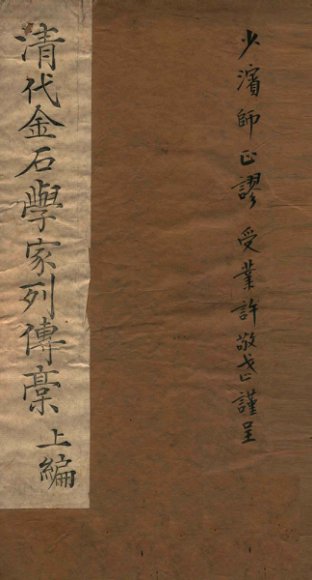 少濱師正謬 受業許敬武謹呈
清代金石學家列傳稾 上編